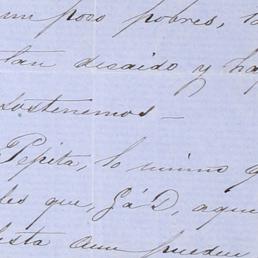 un poco pobres,
tan decaido y ha
sostenemos —
Pepita, lo mismo q
les que, Já D, aque
ista aun pueden